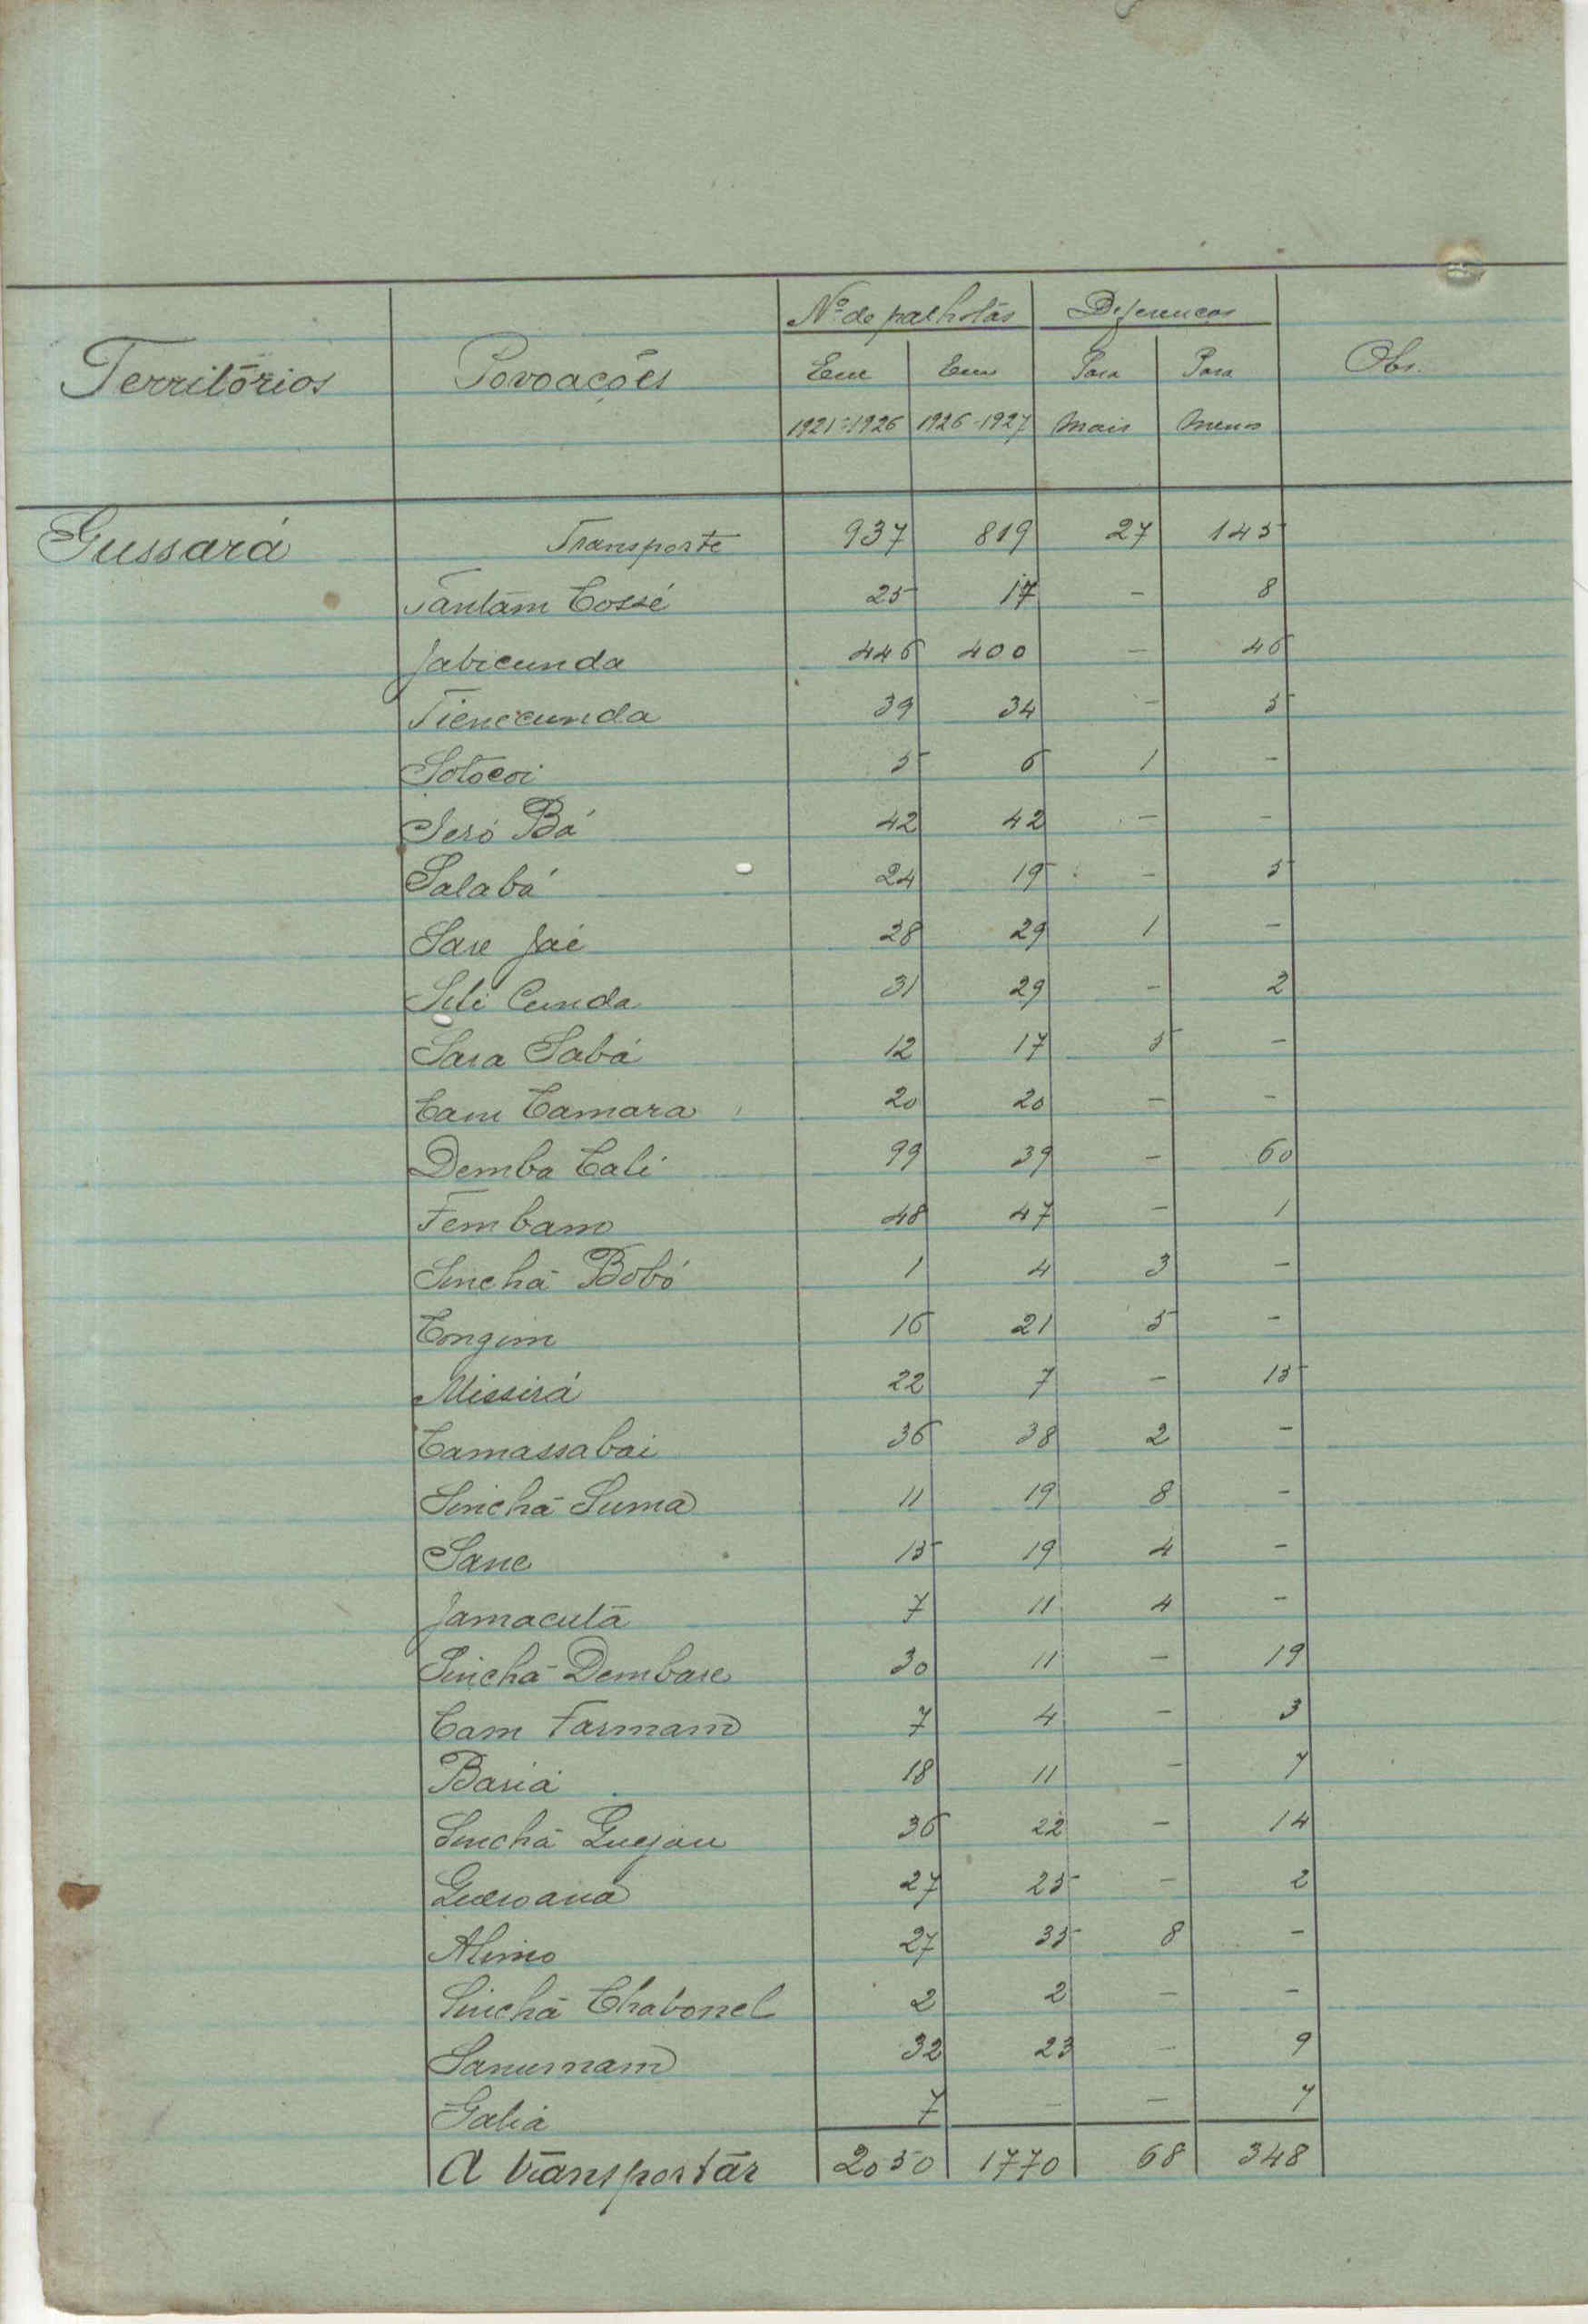 Territórios Povoações Nº de palhotas Deferenças Obs.
Em Em Para Para
1925-1926 1926-1927 Mais Menos
Gussará Transporte 937 819 27 145
Tantam Cossé 25 17 - 8
Jabicunda 446 400 - 46
Tienecunda 39 34 - 5
Sotocoi 5 6 1 -
Seró Bá 42 42 - -
Salabá 24 19 - 5
Sare Jaé 28 29 1 -
Sili Cunda 31 29 - 2
Sara Sabá 12 17 5 -
Cam Camara 20 20 - -
Demba Cali 99 39 - 60
Fembam 48 47 - 1
Sinchã Bobó 1 4 3 -
Congim 16 21 5 -
Missirá 22 7 - 15
Camassabai 36 38 2 -
Sinchã Suma 11 19 8 -
Sane 15 19 4 -
Jamacutã 7 11 4 -
Sinchã Dembare 30 11 - 19
Cam Farmam 7 4 - 3
Bariá 18 11 - 7
Sinchã 36 22 - 14
27 25 - 2
Alimo 27 35 8 -
Sinchã Chabonel 2 2 - -
Sanumam 32 23 - 9
Galiá 7 - - 7
A transportar 2050 1770 68 348